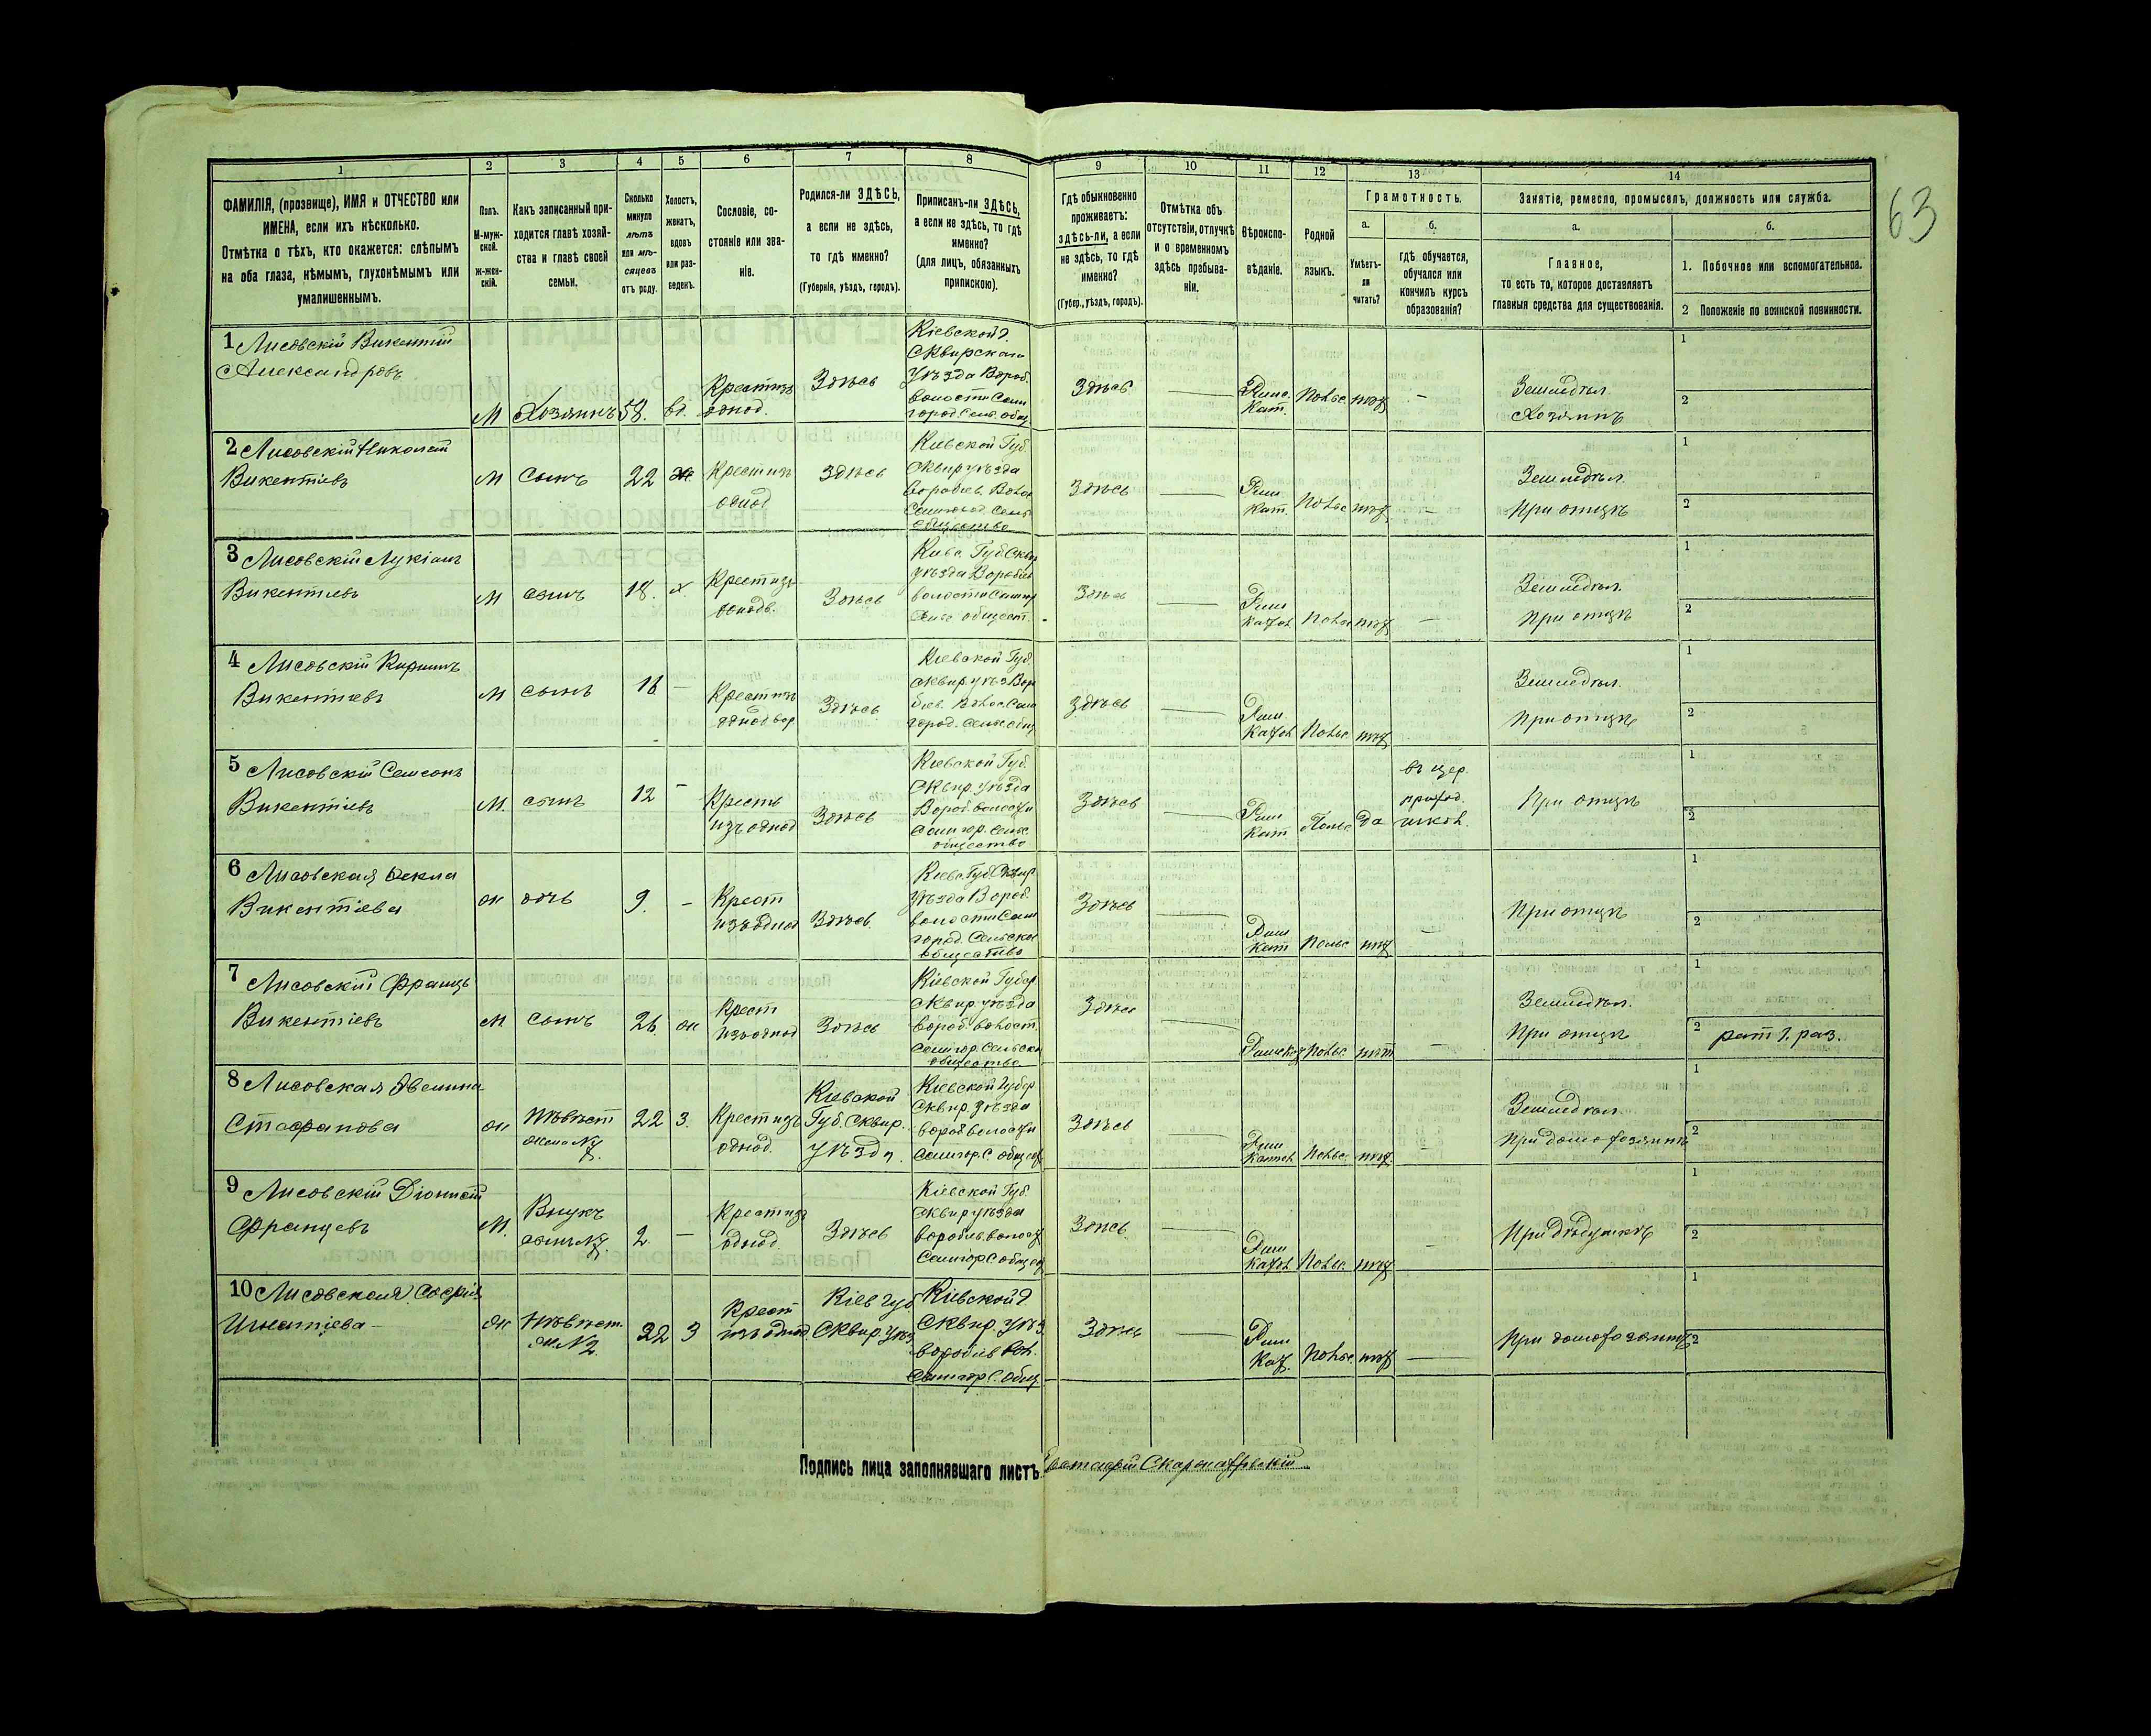 63
1 2 3 4 5 6 7 8 9 10 11 12 13 14
ФАМИЛІЯ, (прозвище), ИМЯ и ОТЧЕСТВО или
ИМЕНА, если ихъ нѣсколько.
Отмѣтка о тѣхъ, кто окажется: слѣпымъ
на оба глаза, нѣмымъ, глухонѣмымъ или
умалишеннымъ.
Полъ.
М-муж-
ской.
ж-жен-
скій.
Какъ записанный при-
ходится главѣ хозяй-
ства и главѣ своей
семьи.
Сколько
минуло
лѣтъ
или мѣ-
сяцевъ
отъ роду.
Холостъ,
женатъ,
вдовъ
или раз-
веденъ.
Сословіе, со-
стояніе или зва-
ніе.
Родился-ли ЗДѢСЬ,
а если не здѣсь,
то гдѣ именно?
(Губернія, уѣздъ, городъ).
Приписанъ-ли ЗДѢСЬ,
а если не здѣсь, то гдѣ
именно?
(для лицъ, обязанныхъ
припискою).
Гдѣ обыкновенно
проживаетъ:
здѣсь-ли, а если
не здѣсь, то гдѣ
именно?
(Губер., уѣздъ, городъ).
Отмѣтка объ
отсутствіи, отлучкѣ
и о временномъ
здѣсь пребыва-
ніи.
Вѣроиспо-
вѣданіе.
Родной
языкъ.
Грамотность.
а.
Умѣетъ-
ли
читать?
б.
гдѣ обучается,
обучался или
кончилъ курсъ
образованія?
Занятіе, ремесло, промыселъ, должность или служба.
а.
Главное,
то есть то, которое доставляетъ
главныя средства для существованія.
б.
1. Побочное или вспомогательное.
2 Положеніе по воинской повинности.
1 Лисовскій Викентій
Александровъ
М Хозяинъ 58. вд.
Крест изъ
однод.
Здѣсь
Кіевской
Сквирскаго
Уѣзда Вороб.
волости Сам
город. Сель. общ
Здѣсь
Римс.
Кат.
Польс
нѣт
Земледѣл.
Хозяинъ
1
2
2 Лисовскій Николай
Викентіевъ
М Сынъ 22 ж
Крест изъ
однод
Здѣсь
Кіевской Губ.
Сквир уѣзда
Воробіев. Волос
Самгород. Сель
Общество
Здѣсь
Рим
Кат.
Польс
нѣт
Земледѣл.
При отцѣ
1
2
3 Лисовскій Лукіанъ
Викентіевъ
М сынъ 18. х.
Крест изъ
однодв.
Здѣсь
Кіевс. Губ Сквир
уѣзда Воробіев
волости Самгор
общест.
Здѣсь
Рим
Катол
Польс
нѣт
Земледѣл.
При отцѣ
1
2
4 Лисовскій
Викентіевъ
М сынъ 18 —
Крест изъ
однодвор
Здѣсь
Кіевской Губ.
Сквир уѣз Воро
біев. Волос Сам
город. Сельс общ
Здѣсь
Рим
Катол
Польс
нѣт
Земледѣл.
При отцѣ
1
2
5 Лисовскій Семсонъ
Викентіевъ
М сынъ 12 —
Крестъ
изъ однод
Здѣсь
Кіевской Губ.
Сквир. Уѣзда
Вороб. волости
Самгор. Сельс.
общество
Здѣсь
Рим
Кат
Польс
Да
въ цер.
приход.
школ.
При отцѣ
1
2
6 Лисовская Ѳекла
Викентіева
ж дочь 9. —
Крест
изъ однод
Здѣсь.
Кіевс Губ Сквир
Уѣзда Вороб.
волости Сам
город. Сельское
общество
Здѣсь
Рим
Кат
Польс
нѣт
При отцѣ
1
2
7 Лисовскій Францъ
Викентіевъ
М Сынъ 26. ж
Крест
изъ однод
Здѣсь
Кіевской Губер
Сквир. уѣзда
Вороб. волост.
Самгор. Сельско
общество
Здѣсь
Римс Кат
Польс
нѣт
Земледѣл.
При отцѣ
1
2 рат 1. раз.
8 Лисовская
Стафанова
ж Невѣст
жена №7.
22 З.
Крест изъ
однод.
Кіевской
Губ. Сквир.
Уѣзда.
Кіевской Губер
Сквир. Уѣзда
Вороб волости
Самгор С. общест
Здѣсь
Рим
Катол
Польс
нѣт.
Земледѣл
При домохозяинѣ
1
2
9 Лисовскій Діонисій
Францевъ
М. Внукъ
сынъ №7
2. —
Крест изъ
однод.
Здѣсь
Кіевской Губ.
Сквир уѣзда
Воробіев. волост
Самгор С общест
Здѣсь.
Рим
Катол
Польс
нѣт
При дѣдушкѣ
1
2
10 Лисовская Софія
Игнатіева
ж Невѣст.
ж. №2.
22 З
Крест
изъ однод
Кіев Губ
Сквир. Уѣз.
Кіевской
Сквир. Уѣз.
Воробіев Вол.
Самгор С. Общ.
Здѣсь
Рим
Кат.
Польс.
нѣт
При домохозяинѣ
1
2
Подпись лица заполнявшаго листъ